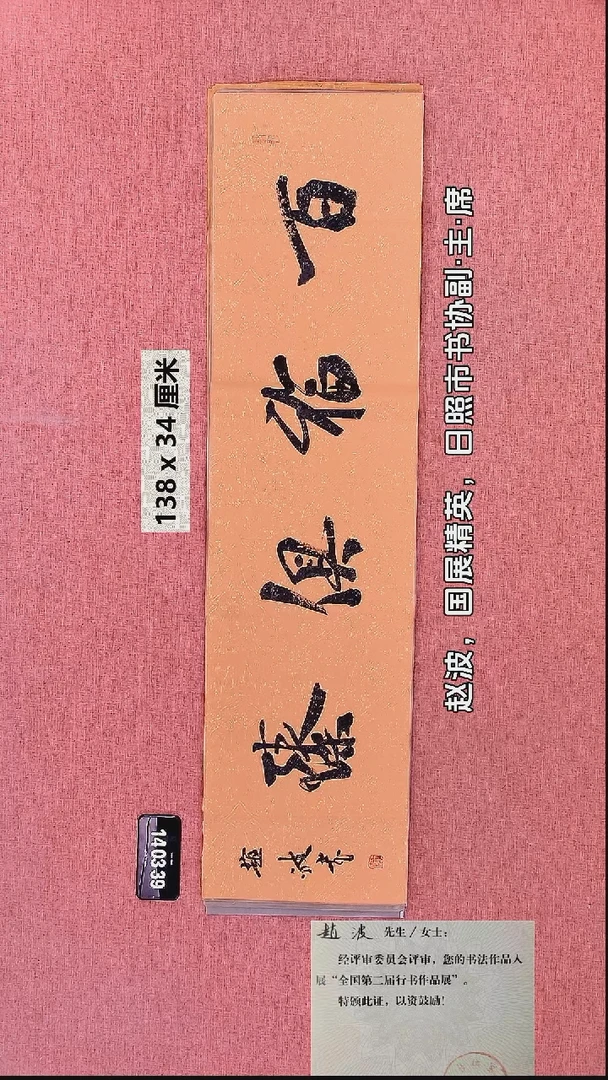 百俱臻
趙波书
138 x 34 厘米
赵波，国展精英，日照市书协副·主·席
140339
趙波 先生／女士：
经评审委员会评审，您的书法作品入
展“全国第二届行书作品展”。
特颁此证，以资鼓励！